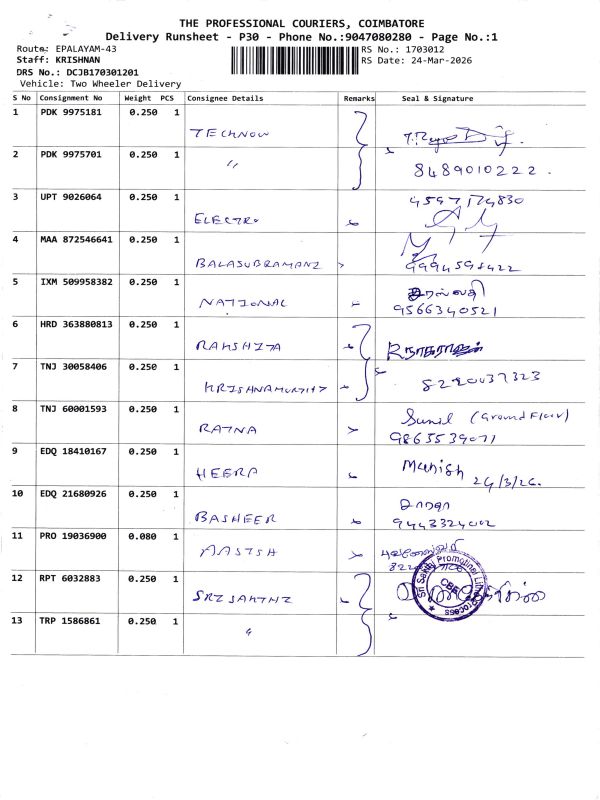 THE PROFESSIONAL COURIERS, COIMBATORE
Delivery Runsheet - P30 - Phone No.:9047080280 - Page No.:1
Route: EPALAYAM-43
RS No.: 1703012
Staff: KRISHNAN
RS Date: 24-Mar-2026
DRS No.: DCJB170301201
Vehicle: Two Wheeler Delivery
S No Consignment No Weight PCS Consignee Details Remarks Seal & Signature
1 PDK 9975181 0.250 1 TECHNOW
2 PDK 9975701 0.250 1 〃 8489010222.
3 UPT 9026064 0.250 1 ELECTRO
4 MAA 872546641 0.250 1 BALASUBRAMANI
5 IXM 509958382 0.250 1 NATIONAL 9566340521
6 HRD 363880813 0.250 1 RAKSHITA
7 TNJ 30058406 0.250 1 KRISHNAMURTHY
8 TNJ 60001593 0.250 1 RATNA Sunil (Ground Floor)
9865539071
9 EDQ 18410167 0.250 1 HEERA Manish 24/3/26.
10 EDQ 21680926 0.250 1 BASHEER ராஜா
9443324002
11 PRO 19036900 0.080 1 AASISH
12 RPT 6032883 0.250 1 SRI SAKTHI
Sri Sakthi Promotional Litho Process
CBE
13 TRP 1586861 0.250 1 〃